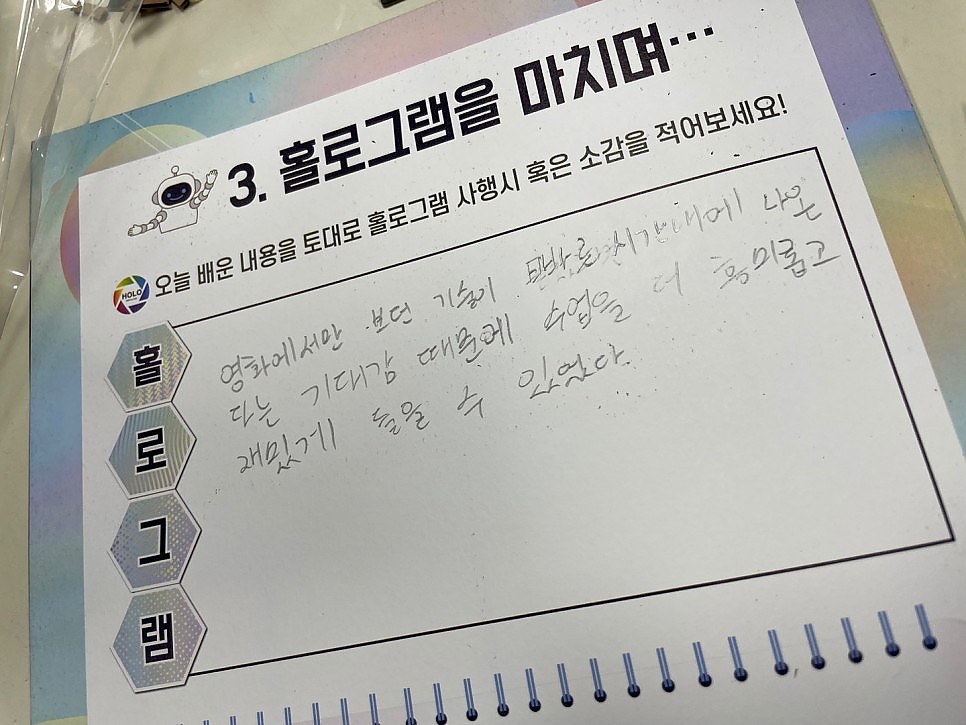 3. 홀로그램을 마치며...
오늘 배운 내용을 토대로 홀로그램 사행시 혹은 소감을 적어보세요!
HOLO
홀
로
그
램
영화에서만 보던 기술이 시간내에 나온
다는 기대감 때문에 수업을 더 흥미롭고
재밌게 들을 수 있었다.